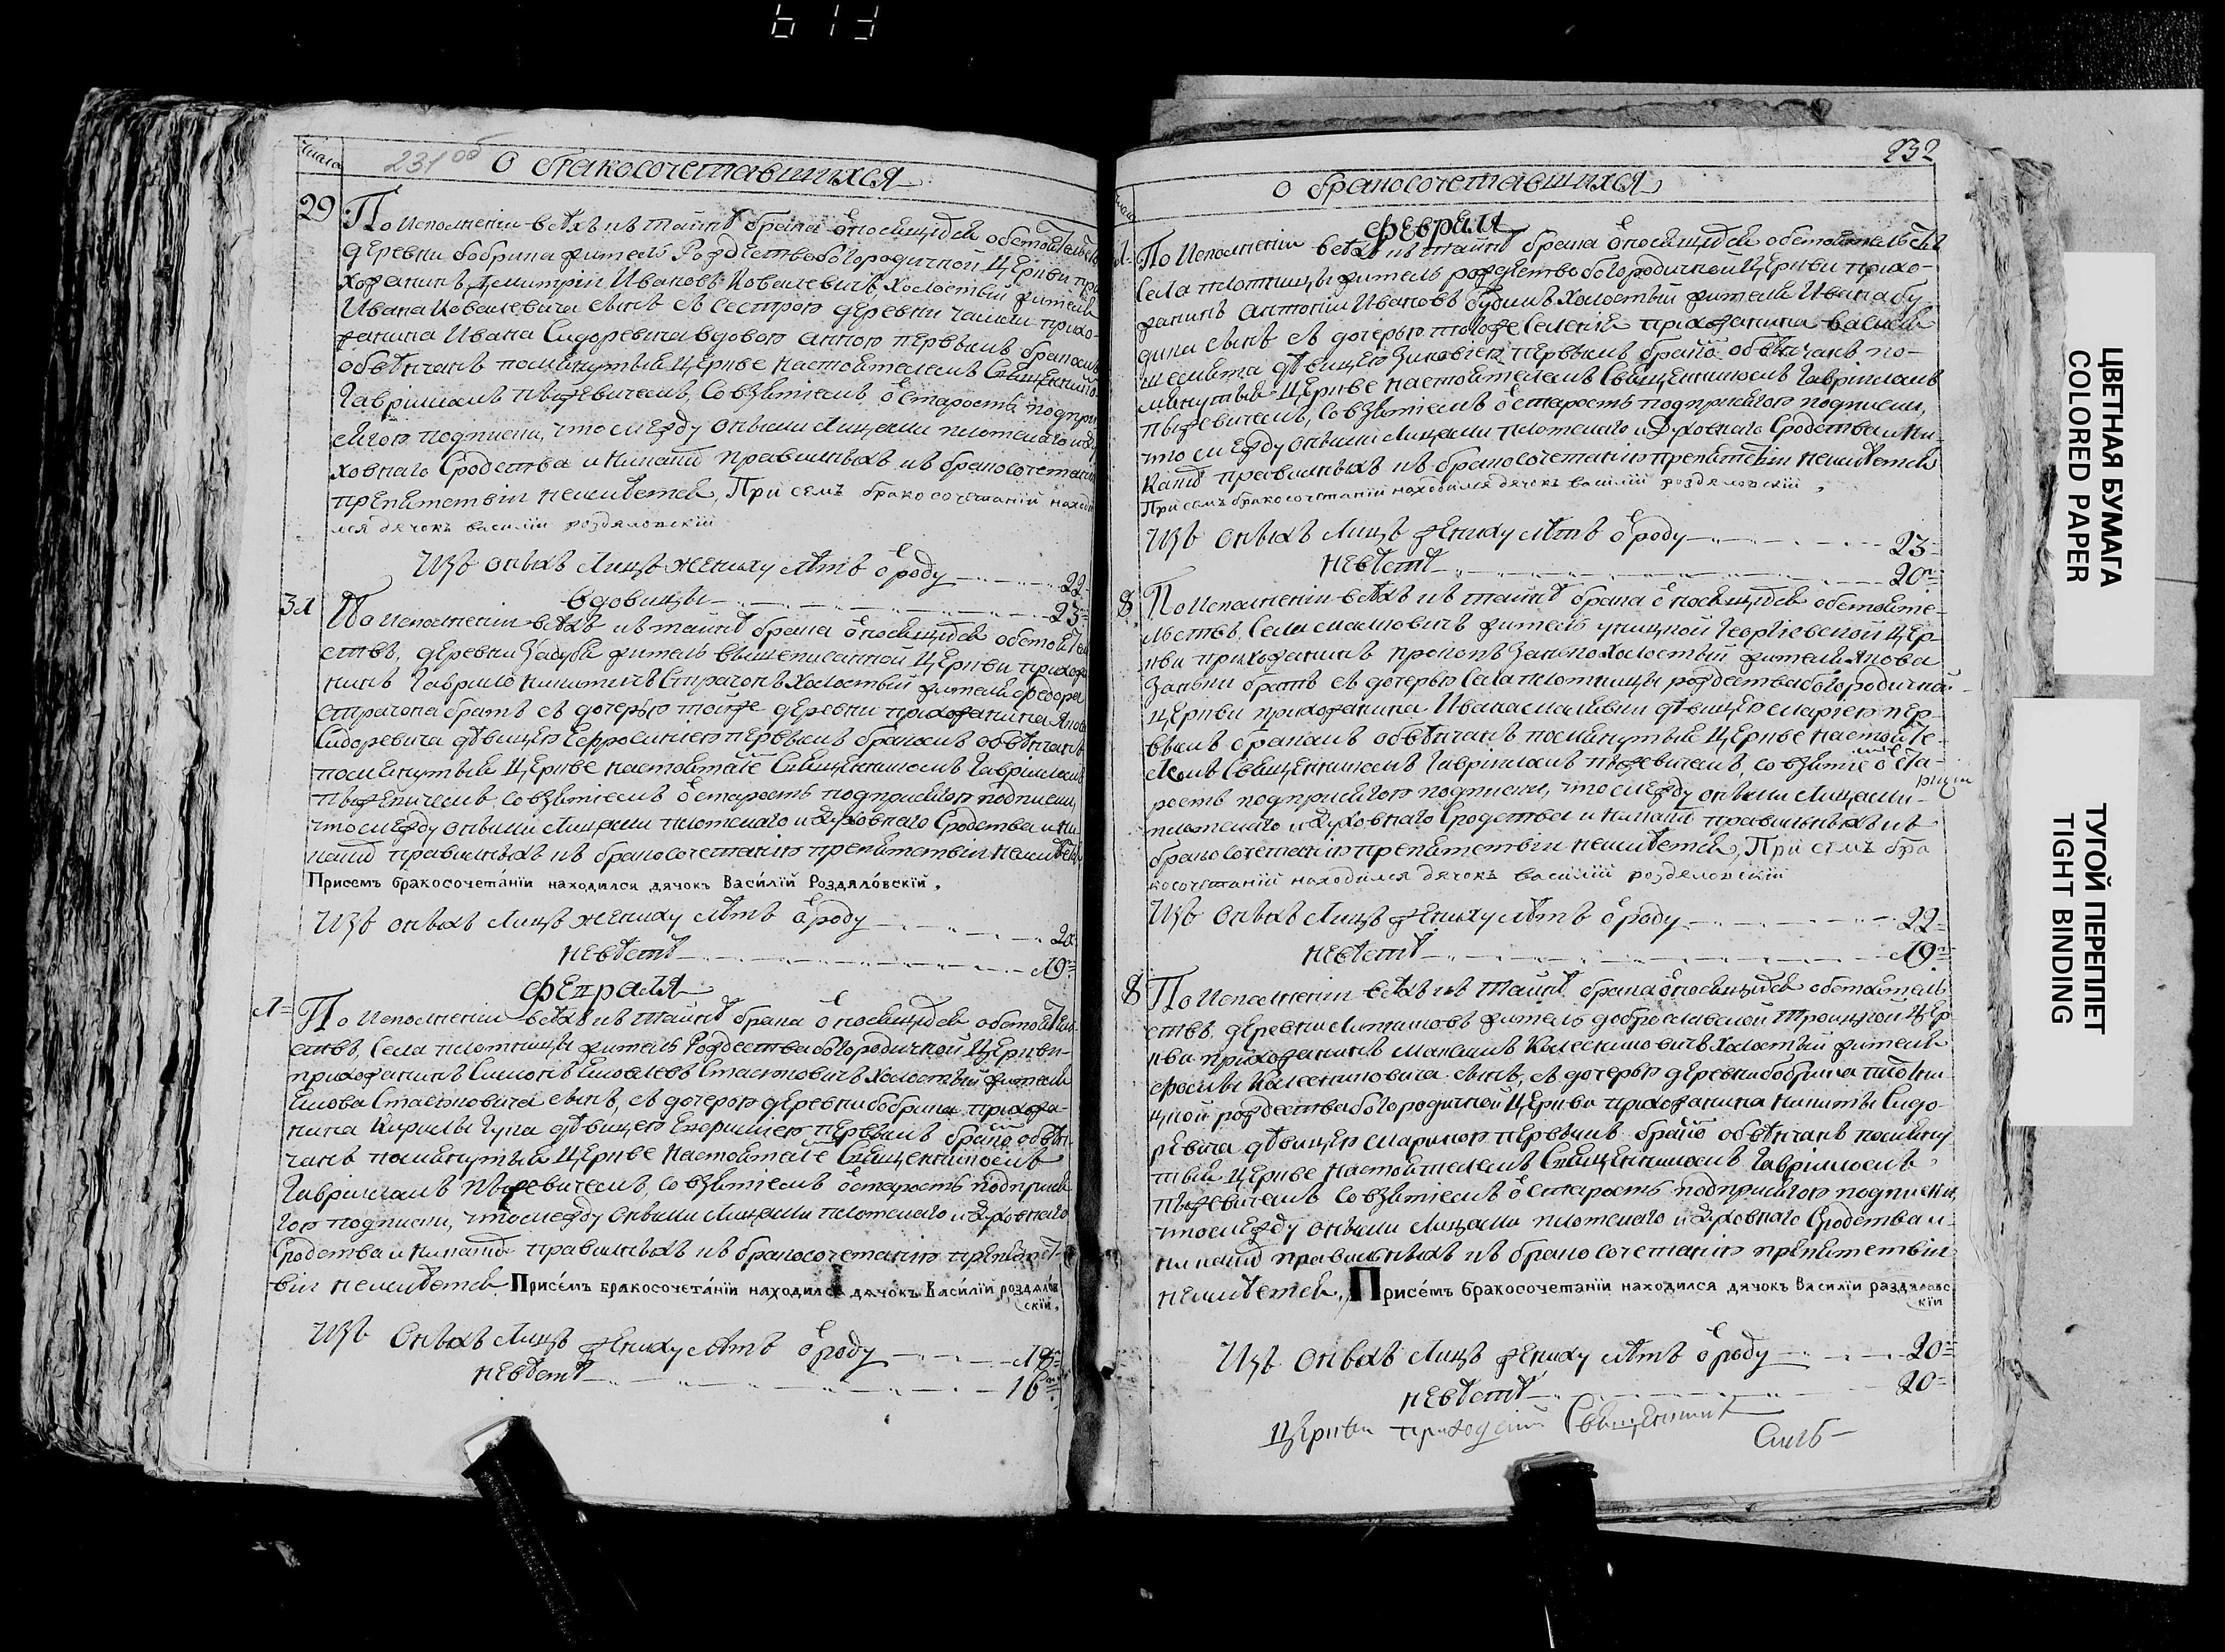 613
числа
231 об
О бракосочетавшихся
29
По исполненіи всѣхъ къ тайнѣ брака относящихся обстоятельствъ
деревни бобрика житель Рождествобогородичной Церкви при-
хожанинъ Димитрій Ивановъ Ковалевичъ, холостый жителя
Ивана Ковалевича сынъ съ сестрою деревни прихо-
жанина Ивана Сидоревича вдовою анною первымъ бракомъ
обвѣнчанъ помянутыя Церкве настоятелемъ Священникомъ
Гавріиломъ Пыжевичемъ, со взятіемъ от старостъ подпри-
сягою подписки, что между оными лицами плотскаго и ду-
ховнаго сродства и никакихъ правильныхъ къ бракосочетанію
препятствій неимѣется, При семъ бракосочетаній находи
лся дячокъ василіи роздяловскій
Изъ оныхъ лицъ жениху лѣтъ от роду 22
вдовицы 23
31
По исполненіи всѣхъ къ тайнѣ брака относящихся обстоятель-
ствъ, деревни житель вышеписанной Церкви прихожа
нинъ Гаврило Никитичъ Страчокъ холостый жителя федора
Страчока братъ съ дочерью тойже деревни прихожанина Якова
Сидоревича дѣвицею Ефросиніею первымъ бракомъ обвѣнчанъ
помянутыя Церкве настоятеле Священникомъ Гавріиломъ
Пыжевичемъ, со взятіемъ от старостъ подприсягою подписки,
что между оными лицами плотскаго и духовнаго сродства и ни
какихъ правильныхъ къ бракосочетанію препятствій неимѣется
Присемъ бракосочетáніи находился дячокъ Васи́лій Роздяло́вскій,
Изъ оныхъ лицъ жениху лѣтъ от роду 20
невѣстѣ 19
февраля
1
По исполненіи всѣхъ къ тайнѣ брака относящихся обстоятель-
ствъ, села плотницы житель Рождествабогородичной Церкви
прихожанинъ Симонъ холостый жителя
сынъ, съ дочерью деревни бобрика прихожа-
нина Кирилы дѣвицею первымъ брако обвѣн
чанъ помянутыя Церкве настоятеле Священникомъ
Гавріиломъ Пыжевичемъ, со взятіемъ от старостъ подприся
гою подписки, что между оными лицами плотскаго и духовнаго
сродства и никакихъ правильныхъ къ бракосочетанію препятст-
вій неимѣется Присе́мъ бракосочета́ніи находился дячокъ Васи́лій роздялов
скій,
Изъ оныхъ лицъ жениху лѣтъ от роду 18
невѣстѣ 16
232
о бракосочетавшихся
февраля
1
По исполненіи всѣхъ къ тайнѣ брака относящихся обстоятельствъ
села плотницы житель рождествобогородичной Церкви прихо-
жанинъ антоній Ивановъ Будикъ холостый жителя Ивана бу-
дика сынъ съ дочерью тогоже селенія прихожанина
дѣвицею Зиновіею первымъ брако обвѣнчанъ по-
мянутыя Церкве настоятелемъ Священникомъ Гавріиломъ
Пыжевичемъ, со взятіемъ от старостъ подприсягою подписки,
что между оными лицами плотскаго и духовнаго сродства и ни-
какихъ правильныхъ къ бракосочетанію препятствіи неимѣется
При семъ бракосочетаній находился дячокъ василій роздяловскій,
Изъ оныхъ лицъ жениху лѣтъ от роду 23
невѣстѣ 20
8
По исполненіи всѣхъ къ тайнѣ брака относящихся обстояте-
льствъ, села житель Георгіевской Цер-
кви прихожанинъ прокопъ Занько холостый жителя Якова
Заньки братъ съ дочерью села плотницы рождествабогородичной
Церкви прихожанина Ивана дѣвицею маріею пер-
вымъ бракомъ обвѣнчанъ помянутыя Церкве настояте-
лемъ Священникомъ Гавріиломъ Пыжевичемъ, со взятіе от ста-
ростъ подприсягою подписки, что между оными лицами
плотскаго и духовнаго сродства и никакихъ правильныхъ къ
бракосочетанію препятствіи неимѣется, При семъ бра
косочетаній находился дячокъ василій роздяловскій
Изъ оныхъ лицъ жениху лѣтъ от роду 22
невѣстѣ 19
8
По исполненіи всѣхъ къ тайнѣ брака относящихся обстоятель
ствъ, деревни житель доброславской троицкой Цер
кви прихожанинъ Максимъ Колесниковичъ холостый жителя
Колесниковича сынъ, съ дочерью деревни бобрика плотни
цкой рождествабогородичной Церкви прихожанина Никиты Сидо-
ревича дѣвицею мариною первымъ брако обвѣнчанъ помяну
тыя Церкве настоятелемъ Священникомъ Гавріиломъ
Пыжевичемъ со взятіемъ от старостъ подприсягою подписки,
что между оными лицами плотскаго и духовнаго сродства и
никакихъ правильныхъ къ бракосочетанію препятствіи
неимѣется, Присе́мъ бракосочетаніи находился дячокъ Василіи раздяловс
кіи
Изъ оныхъ лицъ жениху лѣтъ от роду 20
невѣстѣ 20
Церкви Священникъ
ЦВЕТНАЯ БУМАГА
COLORED PAPER
ТУГОЙ ПЕРЕПЛЕТ
TIGHT BINDING